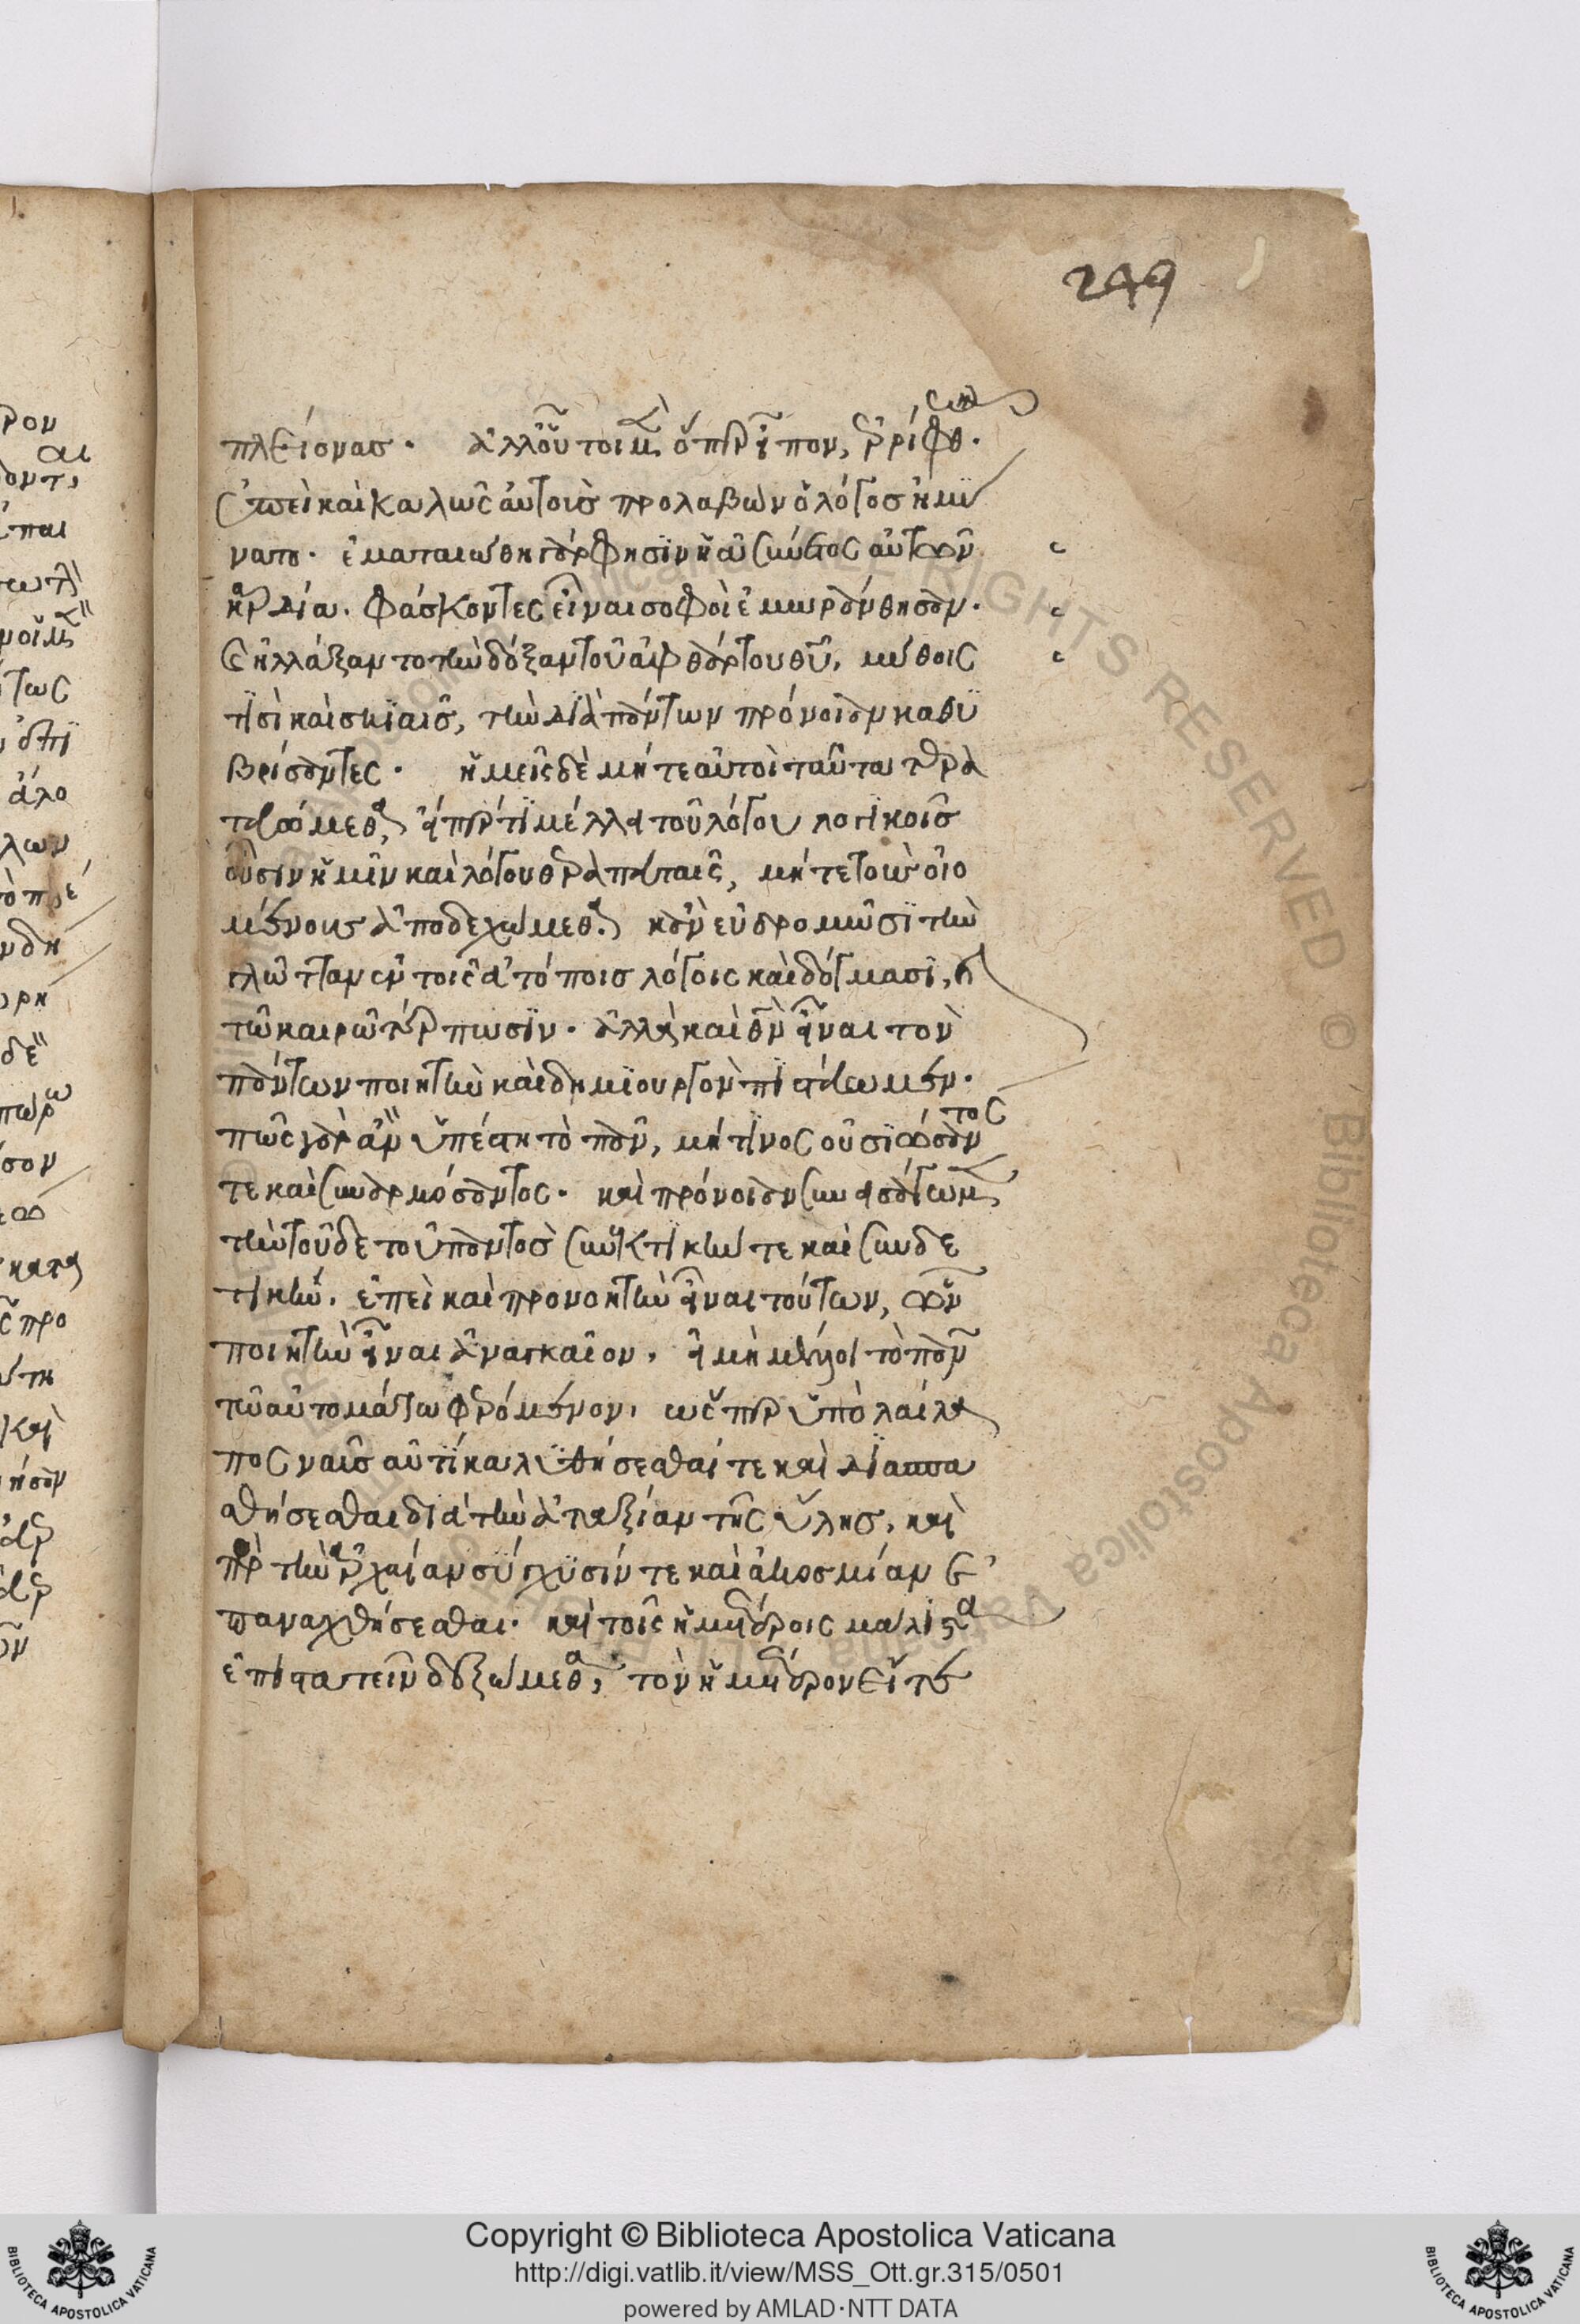 249
πλείονας. ἀλλ' οὗτοι μὲν, ὅπερ εἶπον, ἐρρίφθωσαν.
ἐπεὶ καὶ καλῶς αὐτοῖς προλαβὼν ὁ λόγος ἠμύ
νατο. ἐματαιώθη γάρ φησιν ἡ ἀσύνετος αὐτῶν
καρδία. φάσκοντες εἶναι σοφοὶ ἐμωράνθησαν.
ἐνήλλαξαν τὸ τὴν δόξαν τοῦ ἀφθάρτου θῦ, μύθοις
τισὶ καὶ σκιαῖς, τὴν διὰ πάντων πρόνοιαν καθυ
βρίσαντες. ἡμεῖς δὲ μήτε αὐτοὶ ταῦτα τερα
τευώμεθα, εἴπερ τι μέλλει τοῦ λόγου λογικοῖς
οὖσιν ἡμῖν καὶ λόγου θεραπευταῖς, μήτε τοὺς οἰο
μένους ἀποδεχώμεθα. κἂν εὐδρομῶσι τὴν
γλῶτταν ἐν τοῖς ἀτόποις λόγοις καὶ δόγμασι, καὶ
τῷ καιρῷ τέρπωσιν. ἀλλὰ καὶ θν εἶναι τὸν
πάντων ποιητὴν καὶ δημιουργὸν πιστεύωμεν.
πῶς γὰρ ἂν ὑπέστη τὸ πᾶν, μή τινος οὐσιώσαντος
τε καὶ συναρμόσαντος. καὶ πρόνοιαν συνεισάγωμεν
τὴν τοῦδε τοῦ παντὸς συνεκτικήν τε καὶ συνδε
τικήν. ἐπεὶ καὶ προνοητὴν εἶναι τούτων, ὧν
ποιητὴν εἶναι ἀναγκαῖον. εἰ μὴ μέλλοι τὸ πᾶν
τῷ αὐτομάτῳ φερόμενον, ὥσπερ ὑπὸ λαίλα
πος ναῦς αὐτίκα λυθήσεσθαί τε καὶ διασπα
σθήσεσθαι διὰ τὴν ἀταξίαν τῆς ὕλης, καὶ
πρὸς τὴν ἀρχαίαν σύγχυσίν τε καὶ ἀκοσμίαν ἐ
παναχθήσεσθαι. καὶ τοῖς ἡμετέροις μάλιστα
ἐπιστατεῖν δεξώμεθα, τὸν ἡμέτερον εἴτε
Copyright © Biblioteca Apostolica Vaticana
http://digi.vatlib.it/view/MSS_Ott.gr.315/0501
powered by AMLAD·NTT DATA